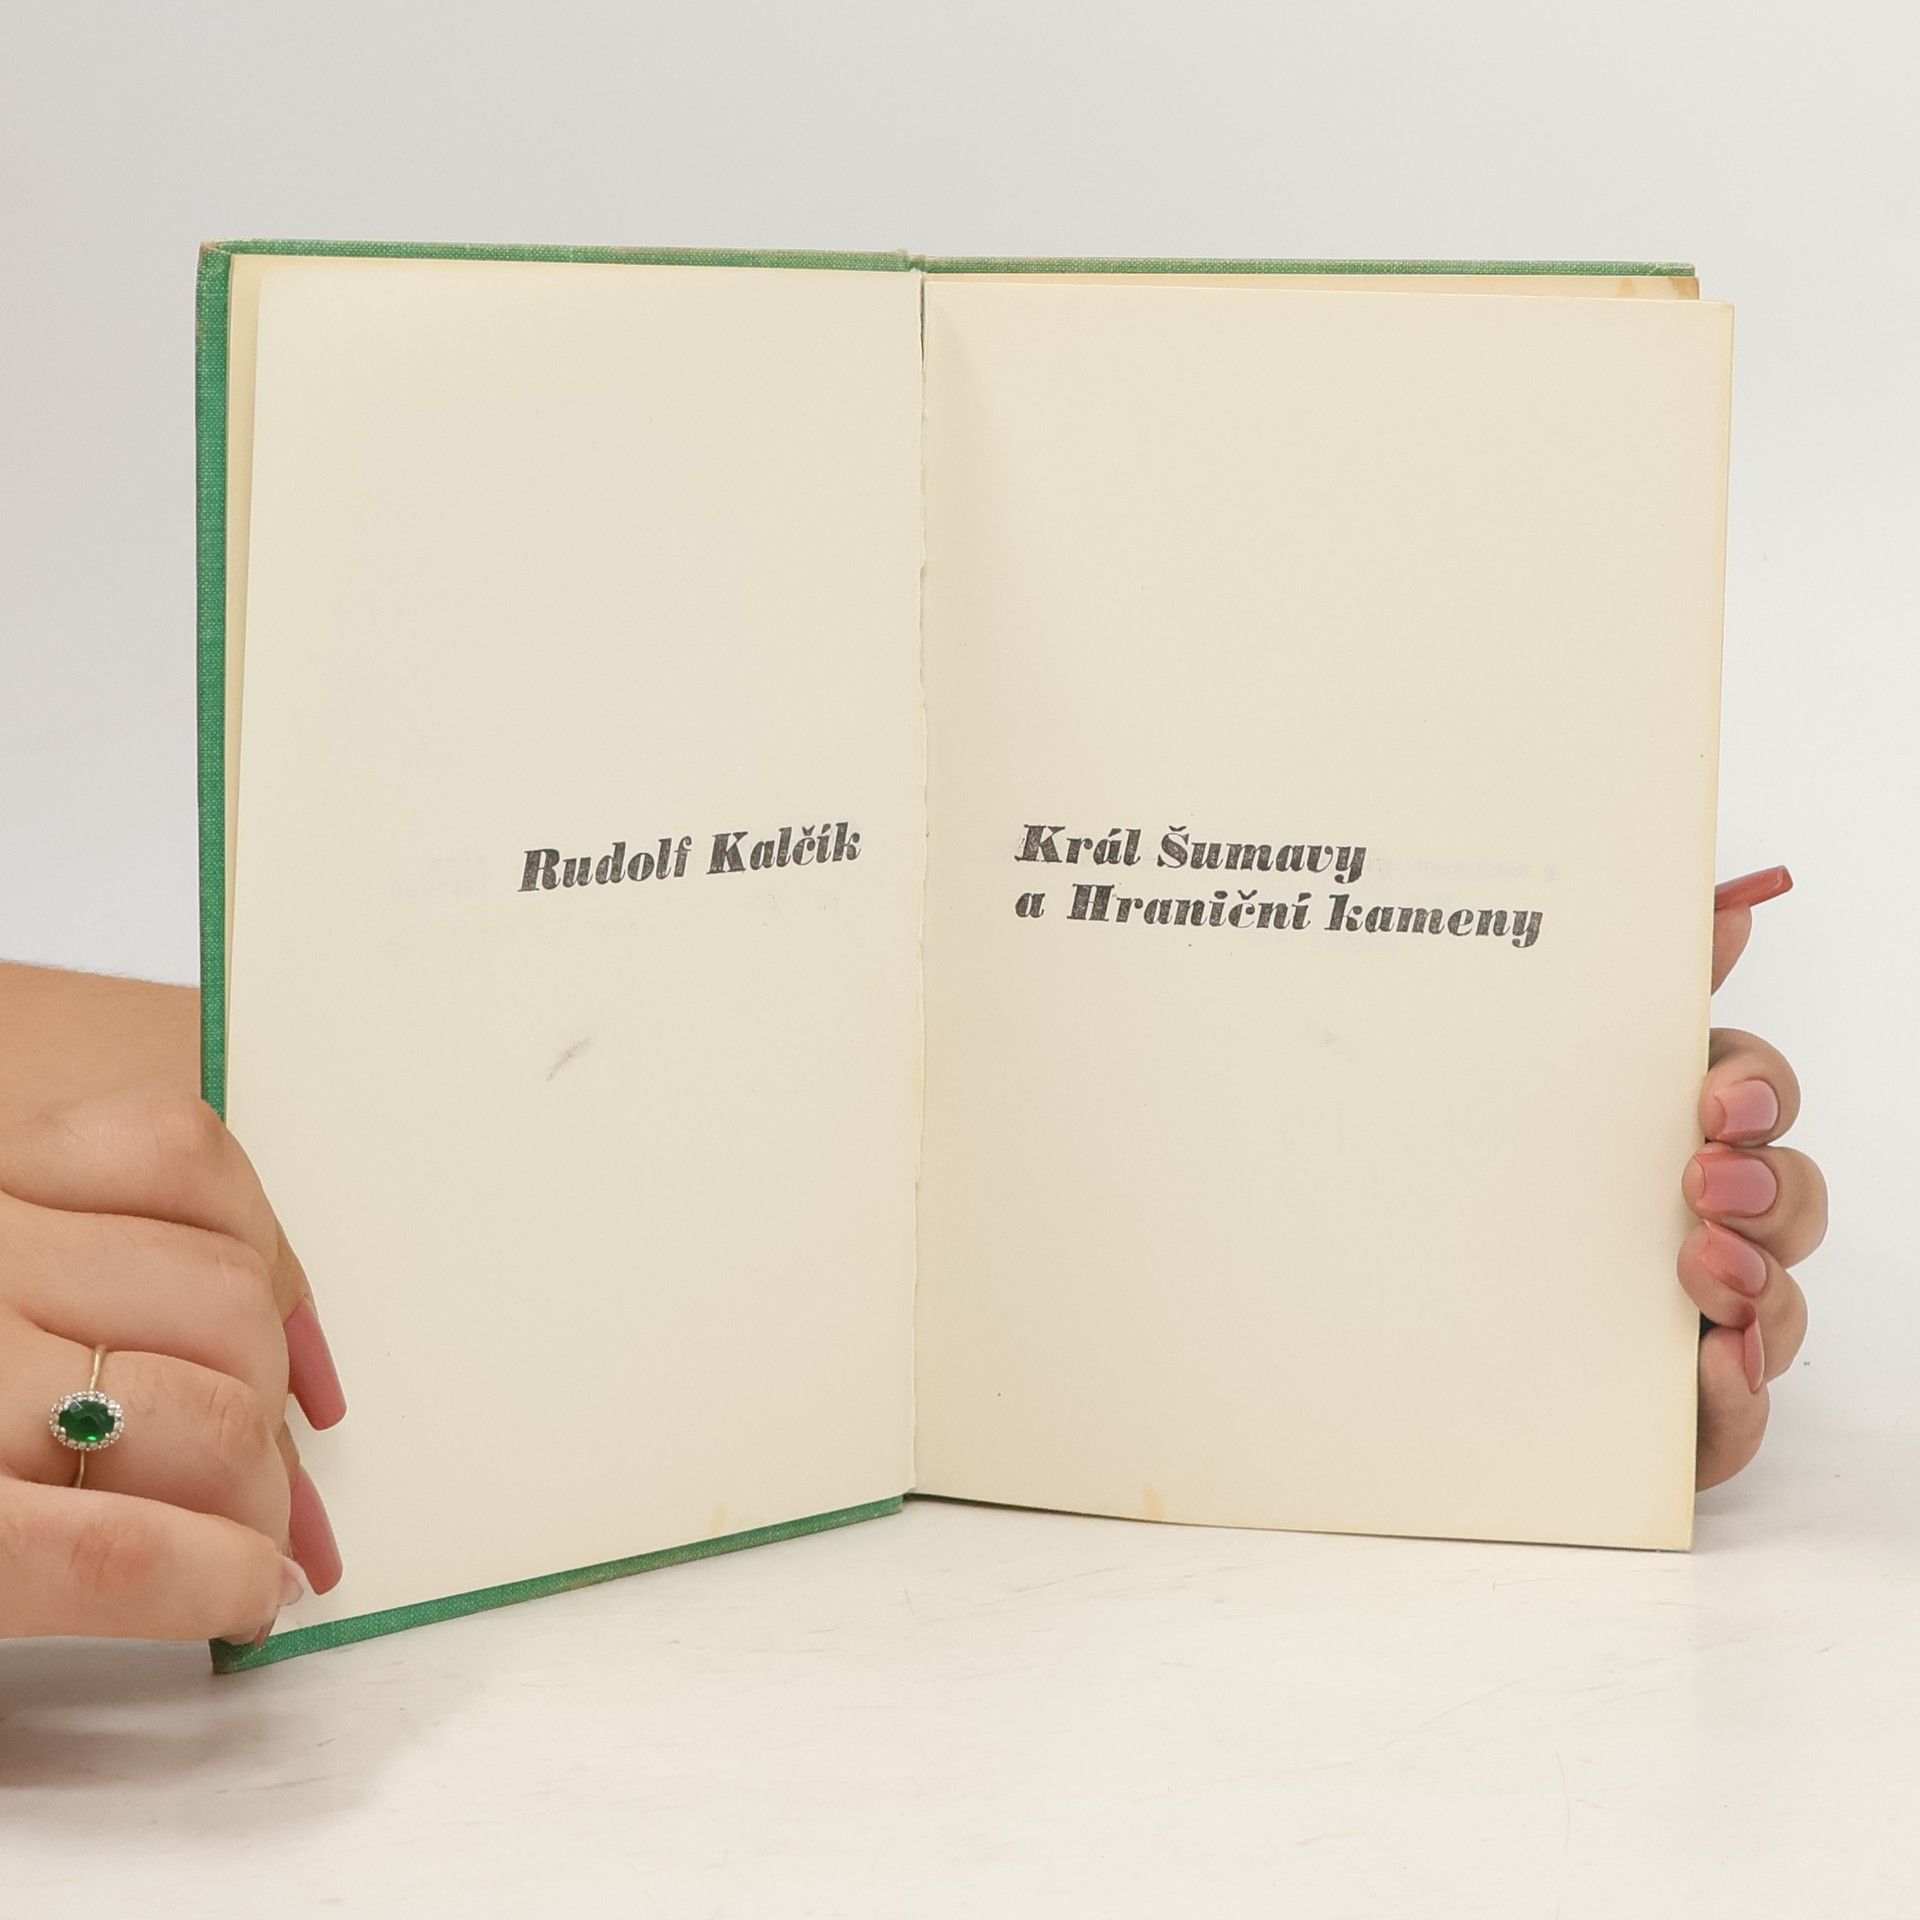 Rudolf Kalčík
Král Šumavy
a Hraniční kameny